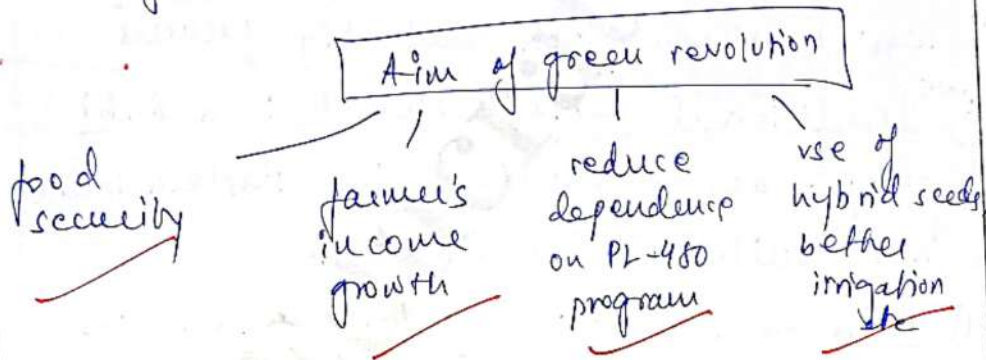 Aim of green revolution
food
security
farmer's
income
growth
reduce
dependence
on PL-480
program
use of
hybrid seeds
bether
irrigation
etc